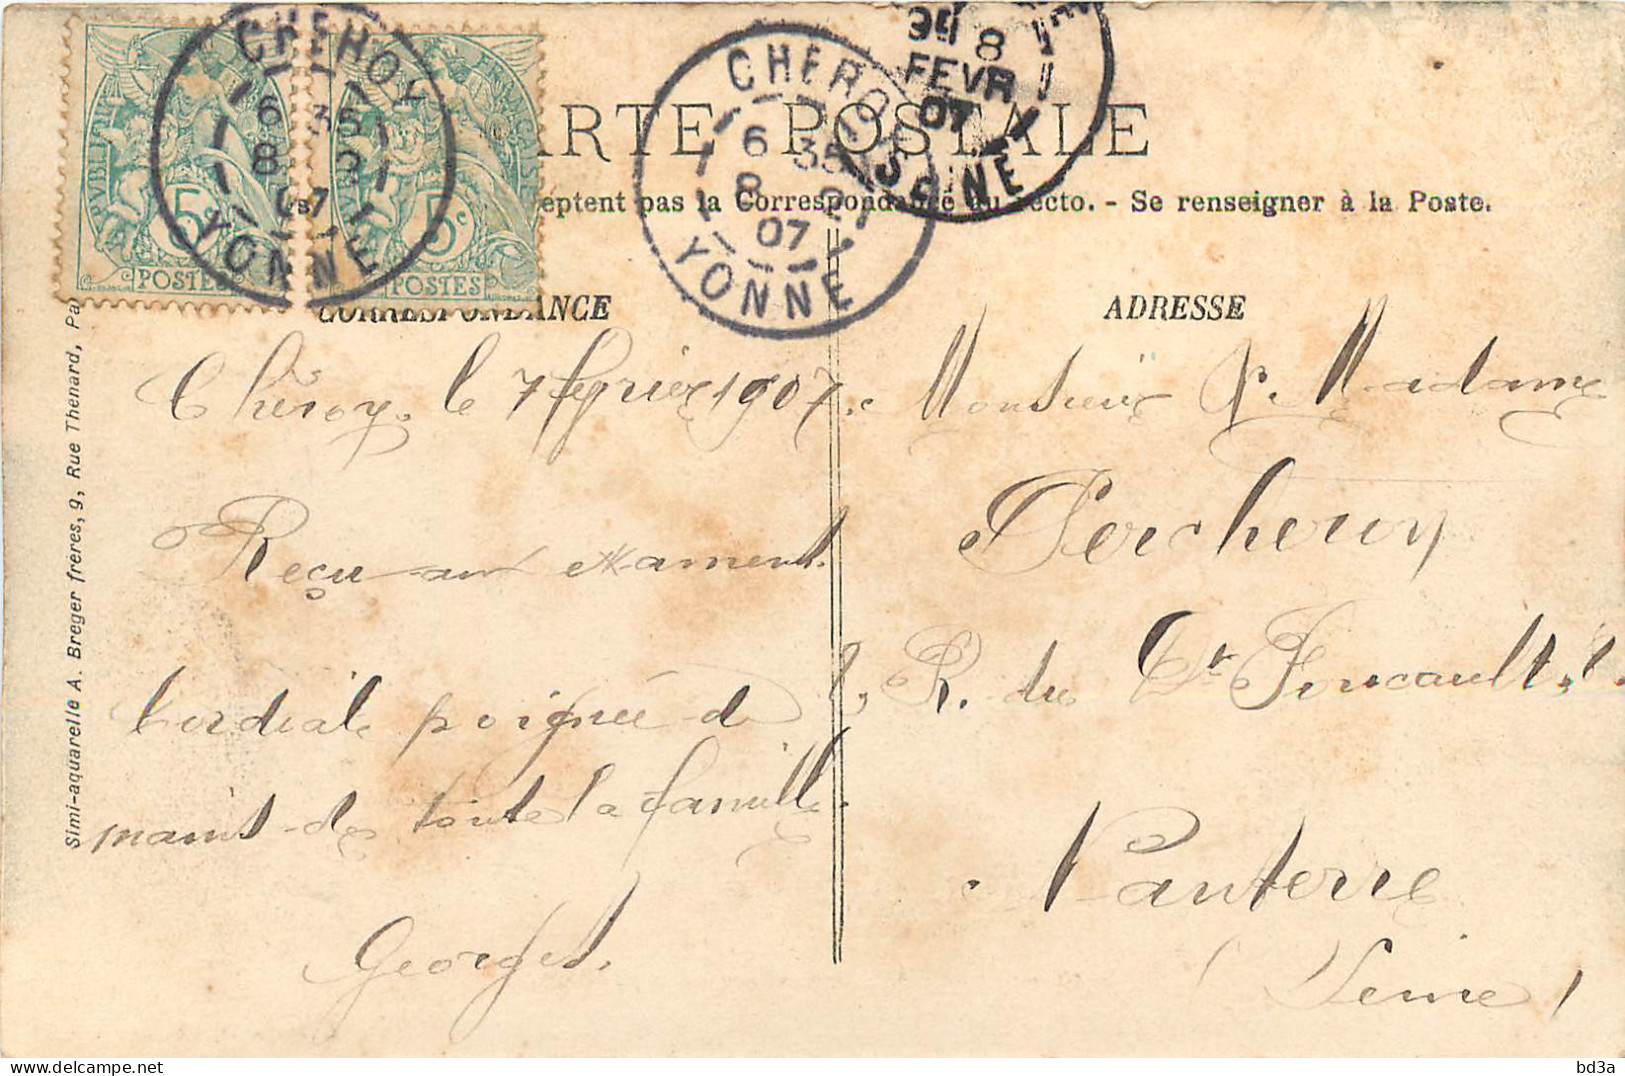 CHEROY
6 35
8 2
07
YONNE
CHEROY
6 35
8 2
07
YONNE
8
FEVR
07
SEINE
PUBLIQUE FRANÇAISE
5c
POSTES
5c
POSTES
CARTE POSTALE
acceptent pas la Correspondance au recto. - Se renseigner à la Poste.
CORRESPONDANCE
ADRESSE
Simi-aquarelle A. Breger frères, 9, Rue Thenard, Pa
Chéroy. le 7 février 1907.
Reçu
Cordiale poignée de
mains de toute la famille.
Georges.
Monsieur & Madame
Percheron
R. du Dr Foucault.
Nanterre
(Seine)
bd3a